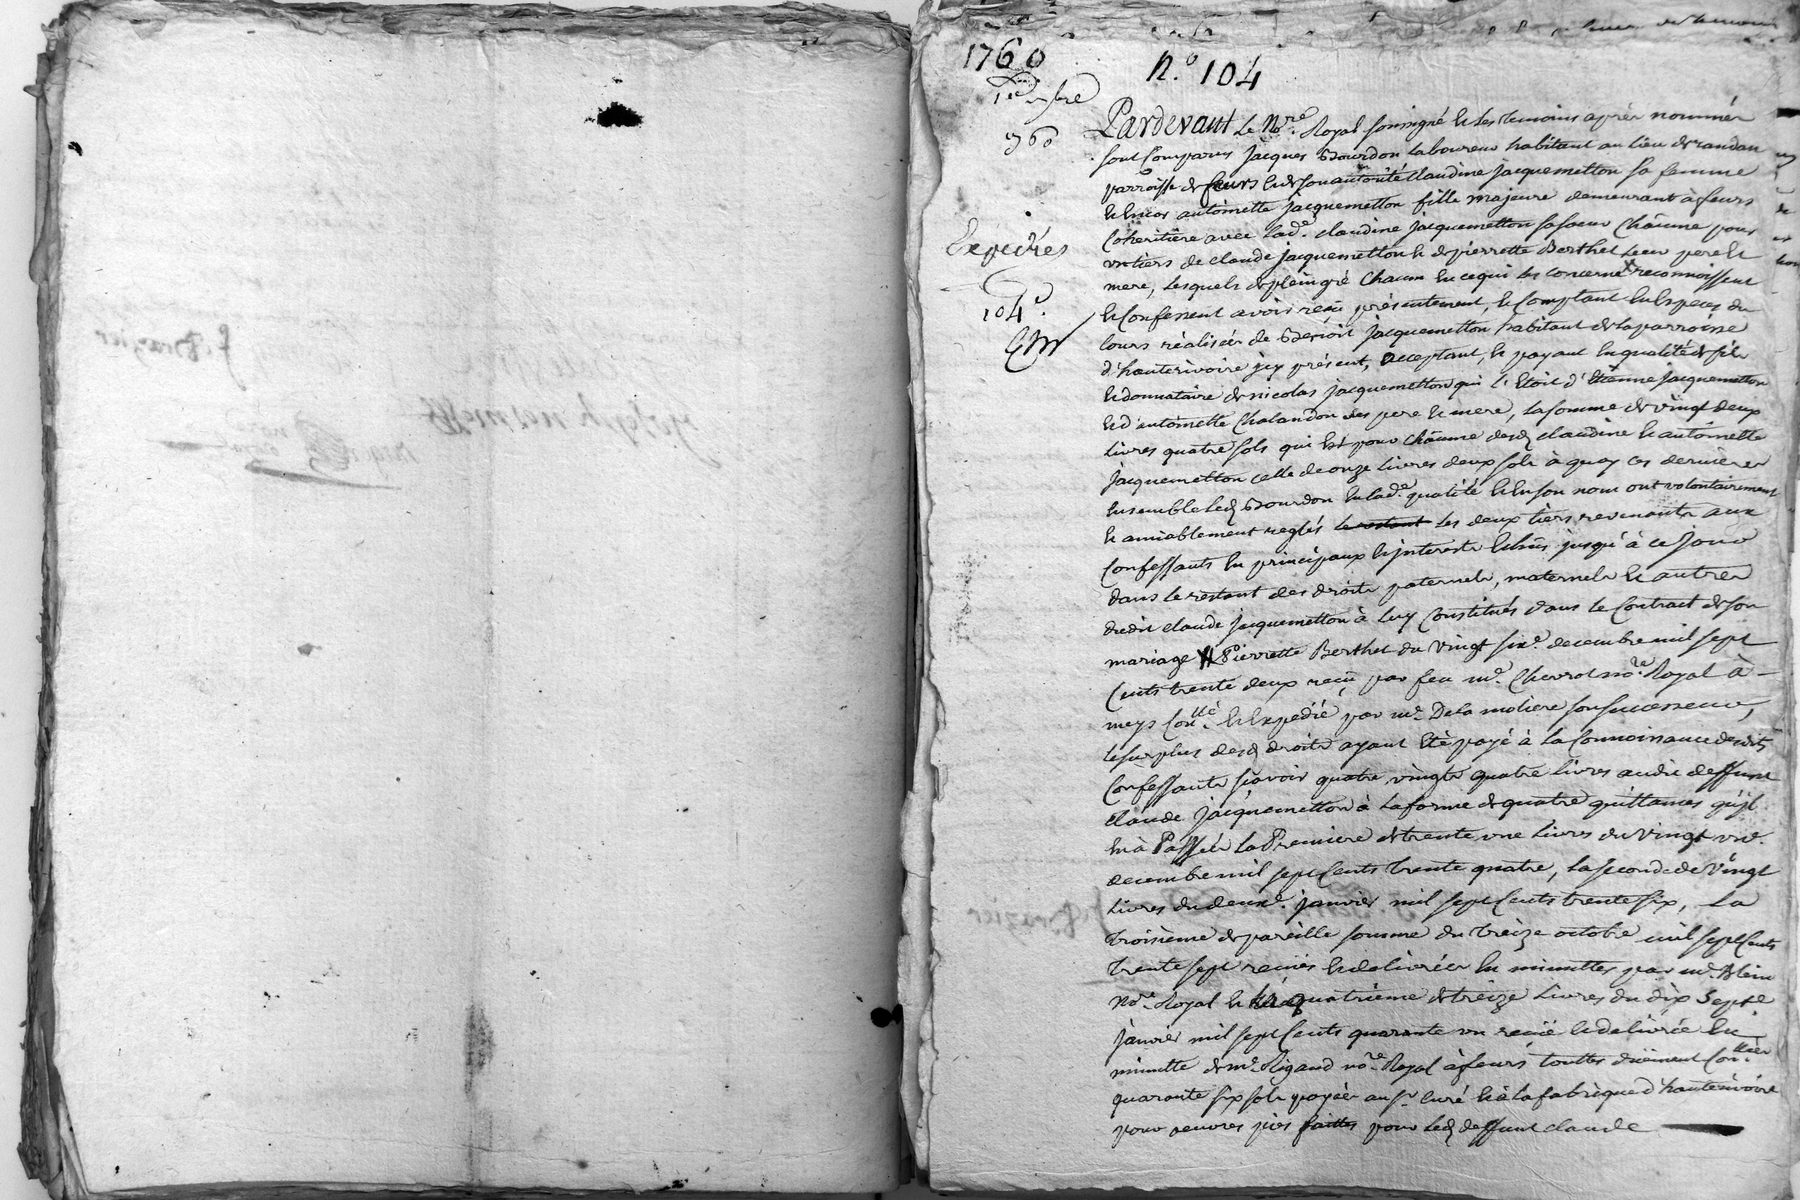 1760
n.º 104
1er xbre
1760
Expediées
104e.
Pardevant Le No.re Royal soussigné et Les temoins après nommés
sont Comparus Jacques Bourdon Laboureur habitant au lieu de randan
parroisse de feurs et de son autorité Claudine Jacquemetton sa femme
et encor antoinette Jacquemetton fille majeure demeurant à feurs
Coheritière avec lad.e Claudine Jacquemetton sa soeur Chacune pour
un tiers de Claude Jacquemetton et de pierrette Berthet Leur pere et
mere, Lesquels de plein gré Chacun en ce qui les concerne reconnoissent
et Confessent avoir reçu présentement, et Comptant en Especes du
Cours réalisées de Benoit Jacquemetton habitant de la parroisse
d'hauterivoire icy présent, acceptant, et payant en qualité de fils
et donnataire de nicolas Jacquemetton qui l'etoit d'Etienne Jacquemetton
et d'antoinette Chalandon ses pere et mere, la somme de vingt deux
Livres quatre sols qui est pour Chacune desd. Claudine et antoinette
Jacquemetton celle de onze Livres deux sols à quoy ces dernieres
ensemble led. Bourdon en lad.e qualité et en son nom ont volontairement
et amiablement reglés le restant les deux tiers revenants aux
Confessants en principaux et interets echus jusqu'à ce jour
dans le restant des droits paternels, maternels et autres
dudit Claude Jacquemetton à Luy Constitués dans le Contract de son
mariage Pierrette Berthet du vingt six.e decembre mil sept
Cents trente deux reçu par feu m.e Chevrot no.re Royal à
meys Con.llé et Expedié par m.e Dela moliere son successeur,
le surplus desd. droits ayant été payé à la Connoissance desdits
Confessants sçavoir quatre vingts quatre Livres audit deffunt
Claude Jacquemetton à la forme de quatre quittances qu'il
en à Passées la Premiere de trente une Livres du vingt un.e
decembre mil sept Cents trente quatre, la seconde de vingt
Livres du deux.e Janvier mil sept Cents trente six, La
troisième de pareille somme du treize octobre mil sept Cents
trente sept reçues et delivrées en minuttes par m.e Blein
No.re Royal et la quatrieme de treize Livres du dix sept.e
Janvier mil sept Cents quarante un reçuë et delivrée en
minutte de m.e Rigaud no.re Royal à feurs touttes duëment Con.llées
quarante six sols payées au s.r Curé et à la fabrique d'hauterivoire
pour oeuvres pies faittes pour led. deffunt Claude